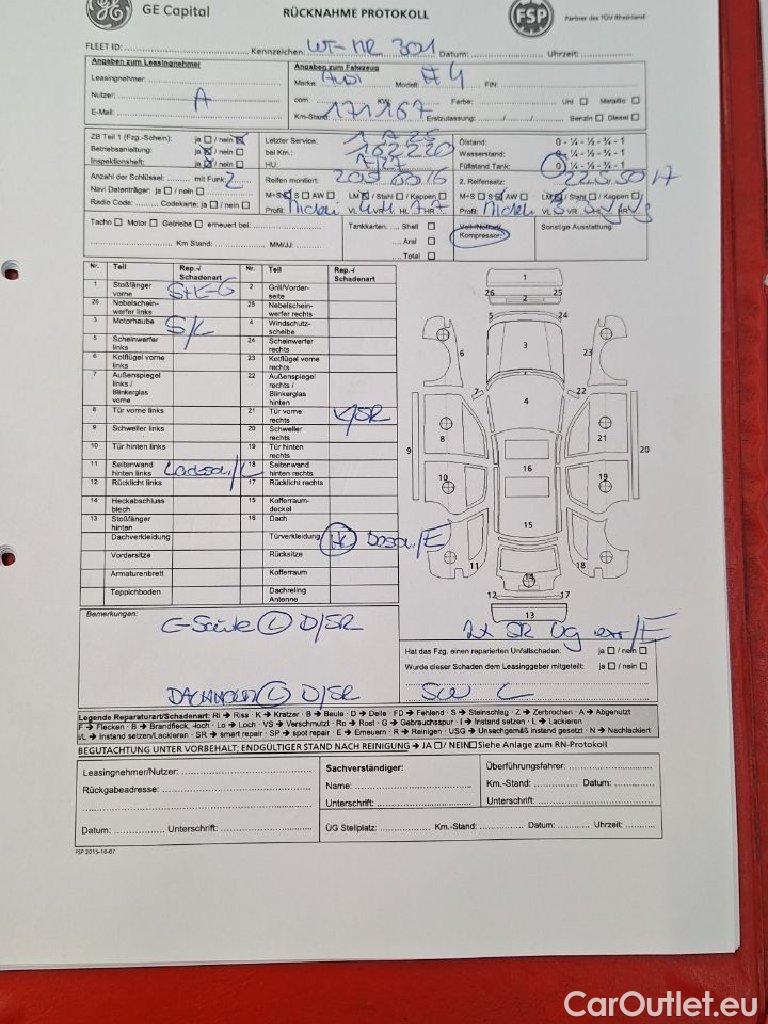 GE Capital RÜCKNAHME PROTOKOLL FSP Partner des TÜV Rheinland
FLEET ID: Kennzeichen: WT-MR 301 Datum: Uhrzeit:
Angaben zum Leasingnehmer Angaben zum Fahrzeug
Leasingnehmer: Marke: Audi Modell: A4 FIN:
Nutzer: A ccm: KW: Farbe: Uni Metallic
E-Mail: Km-Stand: 171167 Erstzulassung: Benzin Diesel
ZB Teil 1 (Fzg.-Schein): ja / nein Letzter Service: Ölstand: 0 - ¼ - ½ - ¾ - 1
Betriebsanleitung: ja / nein bei Km.: 162220 Wasserstand: 0 - ¼ - ½ - ¾ - 1
Inspektionsheft: ja / nein HU: 7/27 Füllstand Tank: 0 - ¼ - ½ - ¾ - 1
Anzahl der Schlüssel: mit Funk: 2 Reifen montiert: 2. Reifensatz: 225 50 17
Navi Datenträger: ja / nein M+S S AW LM / Stahl / Kappen M+S S LM / Stahl / Kappen
Radio Code: Codekarte: ja / nein Profil: VL VR HL HR Profil: VL VR HL HR
Tacho Motor Getriebe erneuert bei: Tankkarten: Shell Voll-/Notrad/ Sonstige Ausstattung:
Km Stand: MM/JJ: Aral Kompressor:
Total
Nr. Teil Rep.-/ Schadenart Nr. Teil Rep.-/ Schadenart
1 Stoßfänger vorne S+E-G 2 Grill/Vorderseite
26 Nebelscheinwerfer links 25 Nebelscheinwerfer rechts
3 Motorhaube S/L 4 Windschutzscheibe
5 Scheinwerfer links 24 Scheinwerfer rechts
6 Kotflügel vorne links 23 Kotflügel vorne rechts
7 Außenspiegel links / Blinkerglas vorne 22 Außenspiegel rechts / Blinkerglas hinten
8 Tür vorne links 21 Tür vorne rechts K/SR
9 Schweller links 20 Schweller rechts
10 Tür hinten links 19 Tür hinten rechts
11 Seitenwand hinten links 18 Seitenwand hinten rechts
12 Rücklicht links 17 Rücklicht rechts
14 Heckabschlussblech 15 Kofferraumdeckel
13 Stoßfänger hinten 16 Dach
Dachverkleidung Türverkleidung
Vordersitze Rücksitze
Armaturenbrett Kofferraum
Teppichboden Dachreling Antenne
1
26 25
2
5 24
3
6 23
7 22
4
8 21
9 20
10 19
16
15
11 18
14
12 17
13
Bemerkungen: D/SR
Hat das Fzg. einen reparierten Unfallschaden: ja / nein
Wurde dieser Schaden dem Leasinggeber mitgeteilt: ja / nein
D/SR
Legende Reparaturart/Schadenart: Ri ➔ Riss · K ➔ Kratzer · B ➔ Beule · D ➔ Delle · FD ➔ Fehlend · S ➔ Steinschlag · Z ➔ Zerbrochen · A ➔ Abgenutzt
F ➔ Flecken · Bi ➔ Brandfleck, -loch · Lo ➔ Loch · VS ➔ Verschmutzt · Ro ➔ Rost · G ➔ Gebrauchsspur · I ➔ Instand setzen · L ➔ Lackieren
I/L ➔ Instand setzen/Lackieren · SR ➔ smart repair · SP ➔ spot repair · E ➔ Erneuern · R ➔ Reinigen · USG ➔ Unsachgemäß instand gesetzt · N ➔ Nachlackiert
BEGUTACHTUNG UNTER VORBEHALT; ENDGÜLTIGER STAND NACH REINIGUNG ➔ JA / NEIN Siehe Anlage zum RN-Protokoll
Leasingnehmer/Nutzer: Sachverständiger: Überführungsfahrer:
Rückgabeadresse: Name: Km.-Stand: Datum:
Unterschrift: Unterschrift:
Datum: Unterschrift: ÜG Stellplatz: Km.-Stand: Datum: Uhrzeit:
FSP 2015-10-07
CarOutlet.eu